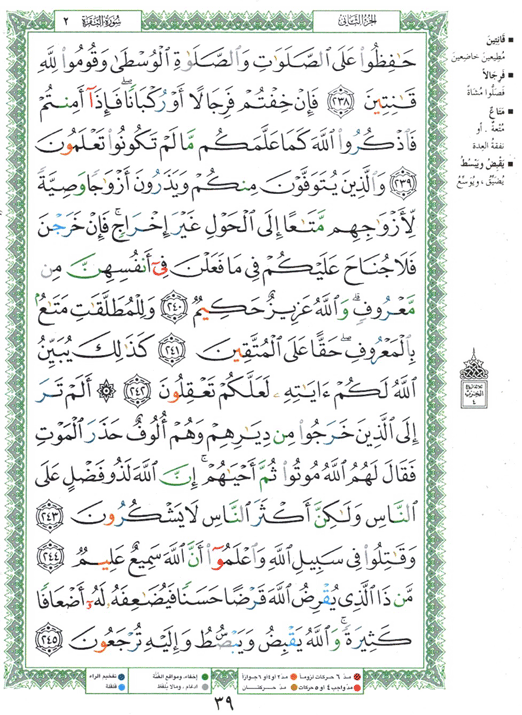 سُورَةُ البَقَرَة ٢
الجزء الثاني
حَـٰفِظُوا۟ عَلَى ٱلصَّلَوَٰتِ وَٱلصَّلَوٰةِ ٱلْوُسْطَىٰ وَقُومُوا۟ لِلَّهِ
قَـٰنِتِينَ ٢٣٨ فَإِنْ خِفْتُمْ فَرِجَالًا أَوْ رُكْبَانًا ۖ فَإِذَآ أَمِنتُمْ
فَٱذْكُرُوا۟ ٱللَّهَ كَمَا عَلَّمَكُم مَّا لَمْ تَكُونُوا۟ تَعْلَمُونَ
٢٣٩ وَٱلَّذِينَ يُتَوَفَّوْنَ مِنكُمْ وَيَذَرُونَ أَزْوَٰجًا وَصِيَّةً
لِّأَزْوَٰجِهِم مَّتَـٰعًا إِلَى ٱلْحَوْلِ غَيْرَ إِخْرَاجٍ ۚ فَإِنْ خَرَجْنَ
فَلَا جُنَاحَ عَلَيْكُمْ فِى مَا فَعَلْنَ فِىٓ أَنفُسِهِنَّ مِن
مَّعْرُوفٍ ۗ وَٱللَّهُ عَزِيزٌ حَكِيمٌ ٢٤٠ وَلِلْمُطَلَّقَـٰتِ مَتَـٰعٌۢ
بِٱلْمَعْرُوفِ ۖ حَقًّا عَلَى ٱلْمُتَّقِينَ ٢٤١ كَذَٰلِكَ يُبَيِّنُ
ٱللَّهُ لَكُمْ ءَايَـٰتِهِۦ لَعَلَّكُمْ تَعْقِلُونَ ٢٤٢ ۞ أَلَمْ تَرَ
إِلَى ٱلَّذِينَ خَرَجُوا۟ مِن دِيَـٰرِهِمْ وَهُمْ أُلُوفٌ حَذَرَ ٱلْمَوْتِ
فَقَالَ لَهُمُ ٱللَّهُ مُوتُوا۟ ثُمَّ أَحْيَـٰهُمْ ۚ إِنَّ ٱللَّهَ لَذُو فَضْلٍ عَلَى
ٱلنَّاسِ وَلَـٰكِنَّ أَكْثَرَ ٱلنَّاسِ لَا يَشْكُرُونَ ٢٤٣
وَقَـٰتِلُوا۟ فِى سَبِيلِ ٱللَّهِ وَٱعْلَمُوٓا۟ أَنَّ ٱللَّهَ سَمِيعٌ عَلِيمٌ ٢٤٤
مَّن ذَا ٱلَّذِى يُقْرِضُ ٱللَّهَ قَرْضًا حَسَنًا فَيُضَـٰعِفَهُۥ لَهُۥٓ أَضْعَافًا
كَثِيرَةً ۚ وَٱللَّهُ يَقْبِضُ وَيَبْصُۜطُ وَإِلَيْهِ تُرْجَعُونَ ٢٤٥
■ قَانِتِينَ
مُطِيعِينَ خَاضِعِينَ
■ فَرِجَالاً
فَصَلُّوا مُشَاةً
■ مَتَاعٌ
مُتْعَةٌ . أو
نفقةُ العِدة
■ يَقْبِضُ وَيَبْسُطُ
يُضَيِّقُ ، ويُوسِّعُ
مدّ ٦ حركات لزوماً
مدّ ٢ أو ٤ أو ٦ جوازاً
إخفاء، ومواقع الغُنَّة
تفخيم الراء
مدّ واجب ٤ أو ٥ حركات
مدّ حركتان
ادغام ، ومالا يُلفَظ
قلقلة
٣٩